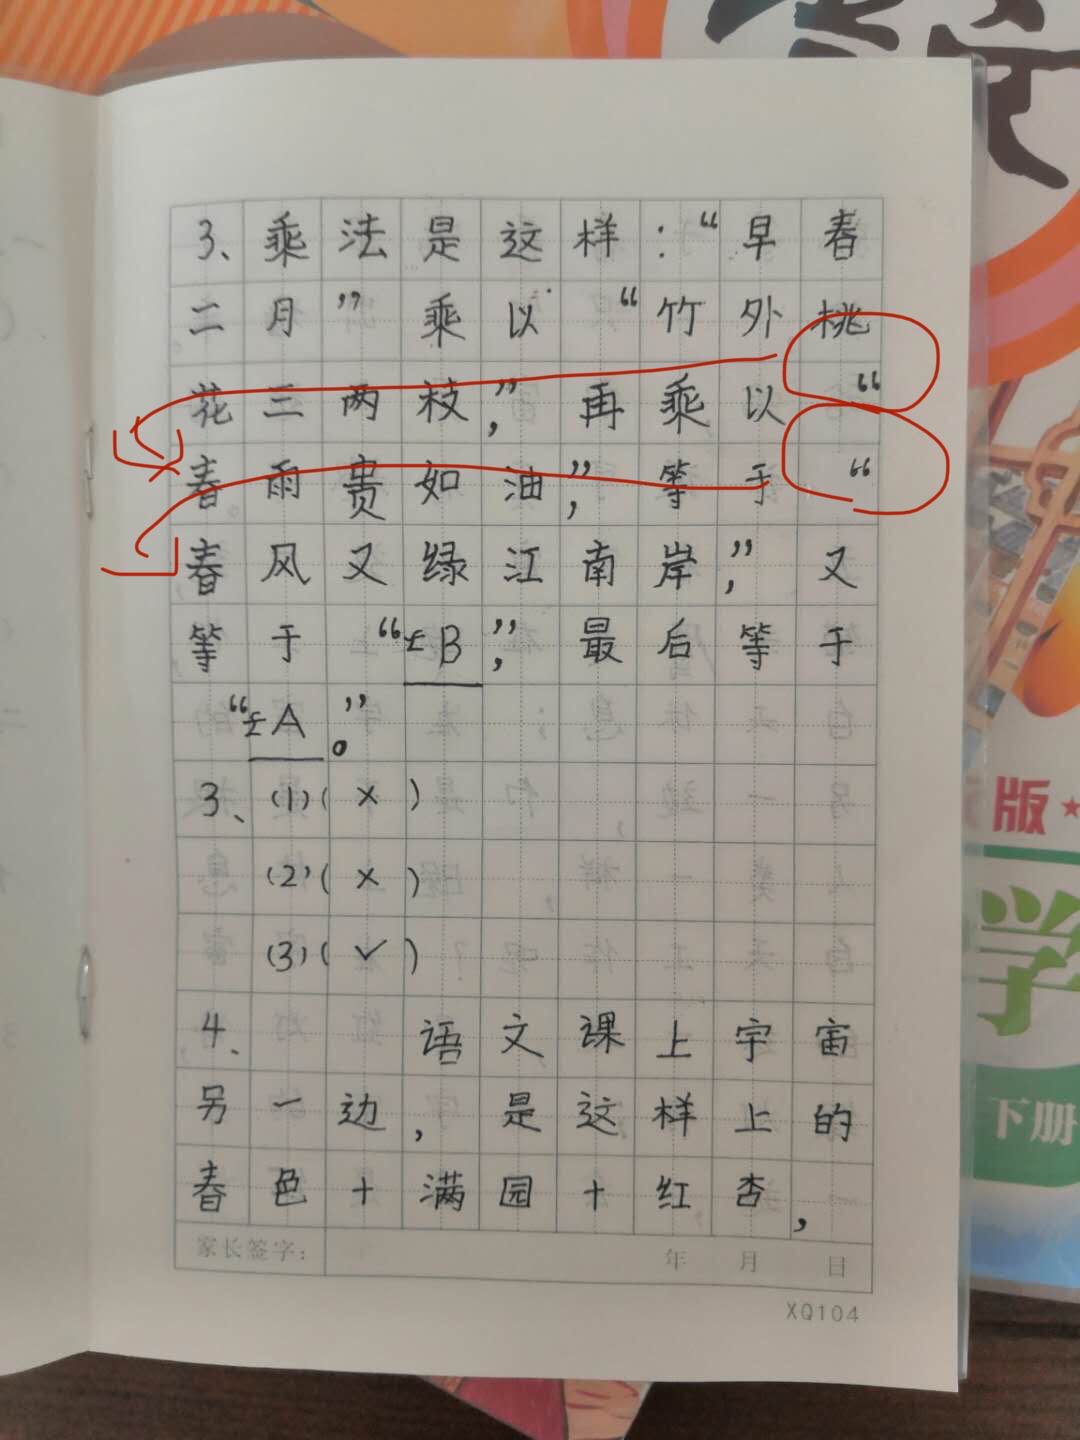 3、乘法是这样：“早春
二月”乘以“竹外桃
花三两枝”，再乘以“
春雨贵如油”，等于“
春风又绿江南岸”，又
等于“±B”，最后等于
“±A”。
3、(1)(×)
(2)(×)
(3)(✓)
4、语文课上宇宙
另一边，是这样上的
春色+满园+红杏，
家长签字： 年 月 日
XQ104
版
学
下册